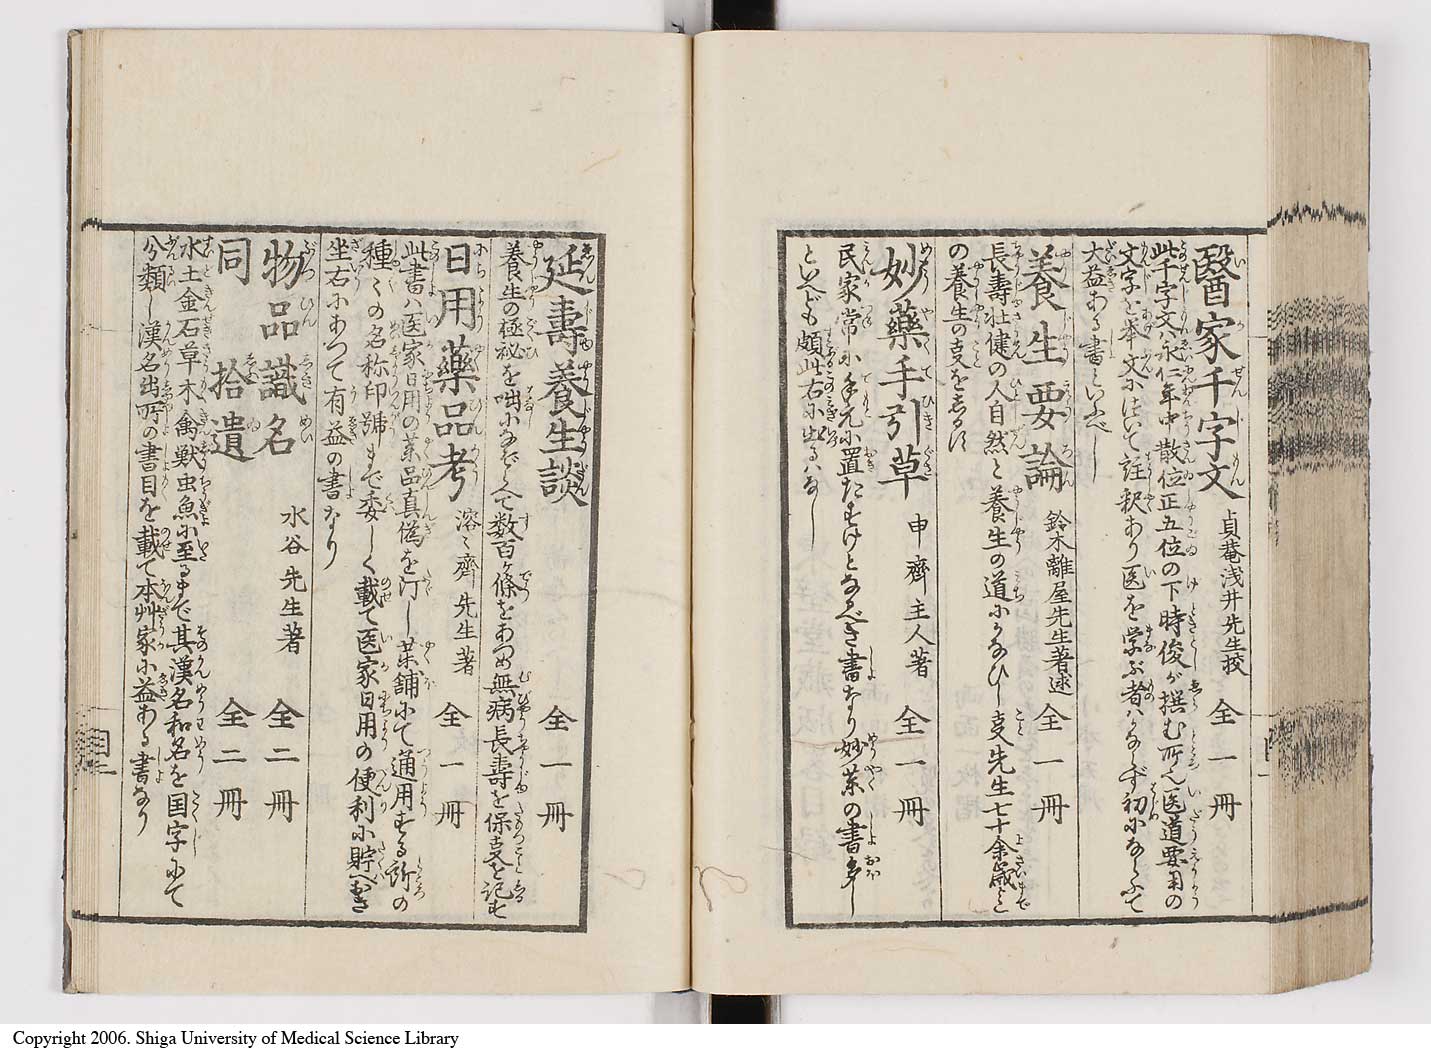 醫家千字文 貞菴浅井先生挍 全一冊
此千字文ハ永仁年中散位正五位の下時俊が撰む所へ医道要用の
文字を挙文に於いて註釈あり医を学ぶ者ハかならず初にならふて
大益ある書といふべし
養生要論 鈴木離屋先生著述 全一冊
長壽壮健の人自然と養生の道にかなひし叓先生七十余歳まで
の養生の叓をしるす
妙藥手引草 申齊主人著 全一冊
民家常に手元に置たすけとなるべき書なり妙薬の書多し
といへども頗此右に出るハなし
延壽養生談 全一冊
養生の極祕を咄になぞらへて数百ヶ條をあつめ無病長壽を保叓を記す
日用藥品考 溶々齊先生著 全一冊
此書ハ医家日用の薬品真偽を訂し薬舗にて通用する所の
種々の名称印號まで委しく載て医家日用の便利に貯へおき
坐右にあつて有益の書なり
物品識名 水谷先生著 全二冊
同 拾遺 全二冊
水土金石草木禽獣虫魚に至るまで其漢名和名を国字にて
分類し漢名出所の書目を載て本艸家に益ある書なり
Copyright 2006. Shiga University of Medical Science Library